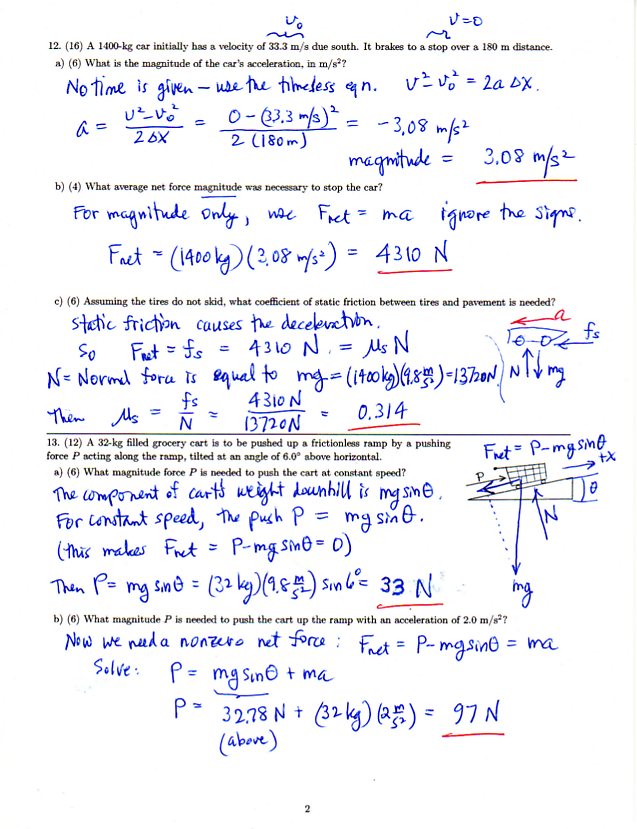 v₀ v=0
12. (16) A 1400-kg car initially has a velocity of 33.3 m/s due south. It brakes to a stop over a 180 m distance.
a) (6) What is the magnitude of the car's acceleration, in m/s²?
No time is given – use the timeless eqn. v²-v₀² = 2aΔx.
a = (v²-v₀²)/(2Δx) = (0-(33.3 m/s)²)/(2(180m)) = -3.08 m/s²
magnitude = 3.08 m/s²
b) (4) What average net force magnitude was necessary to stop the car?
For magnitude only, use Fnet = ma ignore the signs.
Fnet = (1400kg)(3.08 m/s²) = 4310 N
c) (6) Assuming the tires do not skid, what coefficient of static friction between tires and pavement is needed?
a
static friction causes the deceleration.
fs
So Fnet = fs = 4310 N. = μsN
N = Normal force is equal to mg = (1400kg)(9.8 m/s²) = 13720N
N mg
Then μs = fs/N = 4310N/13720N = 0.314
13. (12) A 32-kg filled grocery cart is to be pushed up a frictionless ramp by a pushing
force P acting along the ramp, tilted at an angle of 6.0° above horizontal.
Fnet = P-mg sinθ
+x
a) (6) What magnitude force P is needed to push the cart at constant speed?
P
θ
The component of cart's weight downhill is mg sinθ.
For constant speed, the push P = mg sinθ.
N
(this makes Fnet = P-mg sinθ = 0)
Then P= mg sinθ = (32 kg)(9.8 m/s²) sin 6° = 33 N
mg
b) (6) What magnitude P is needed to push the cart up the ramp with an acceleration of 2.0 m/s²?
Now we need a nonzero net force: Fnet = P-mg sinθ = ma
Solve: P = mg sinθ + ma
P = 32.78 N + (32 kg)(2 m/s²) = 97 N
(above)
2